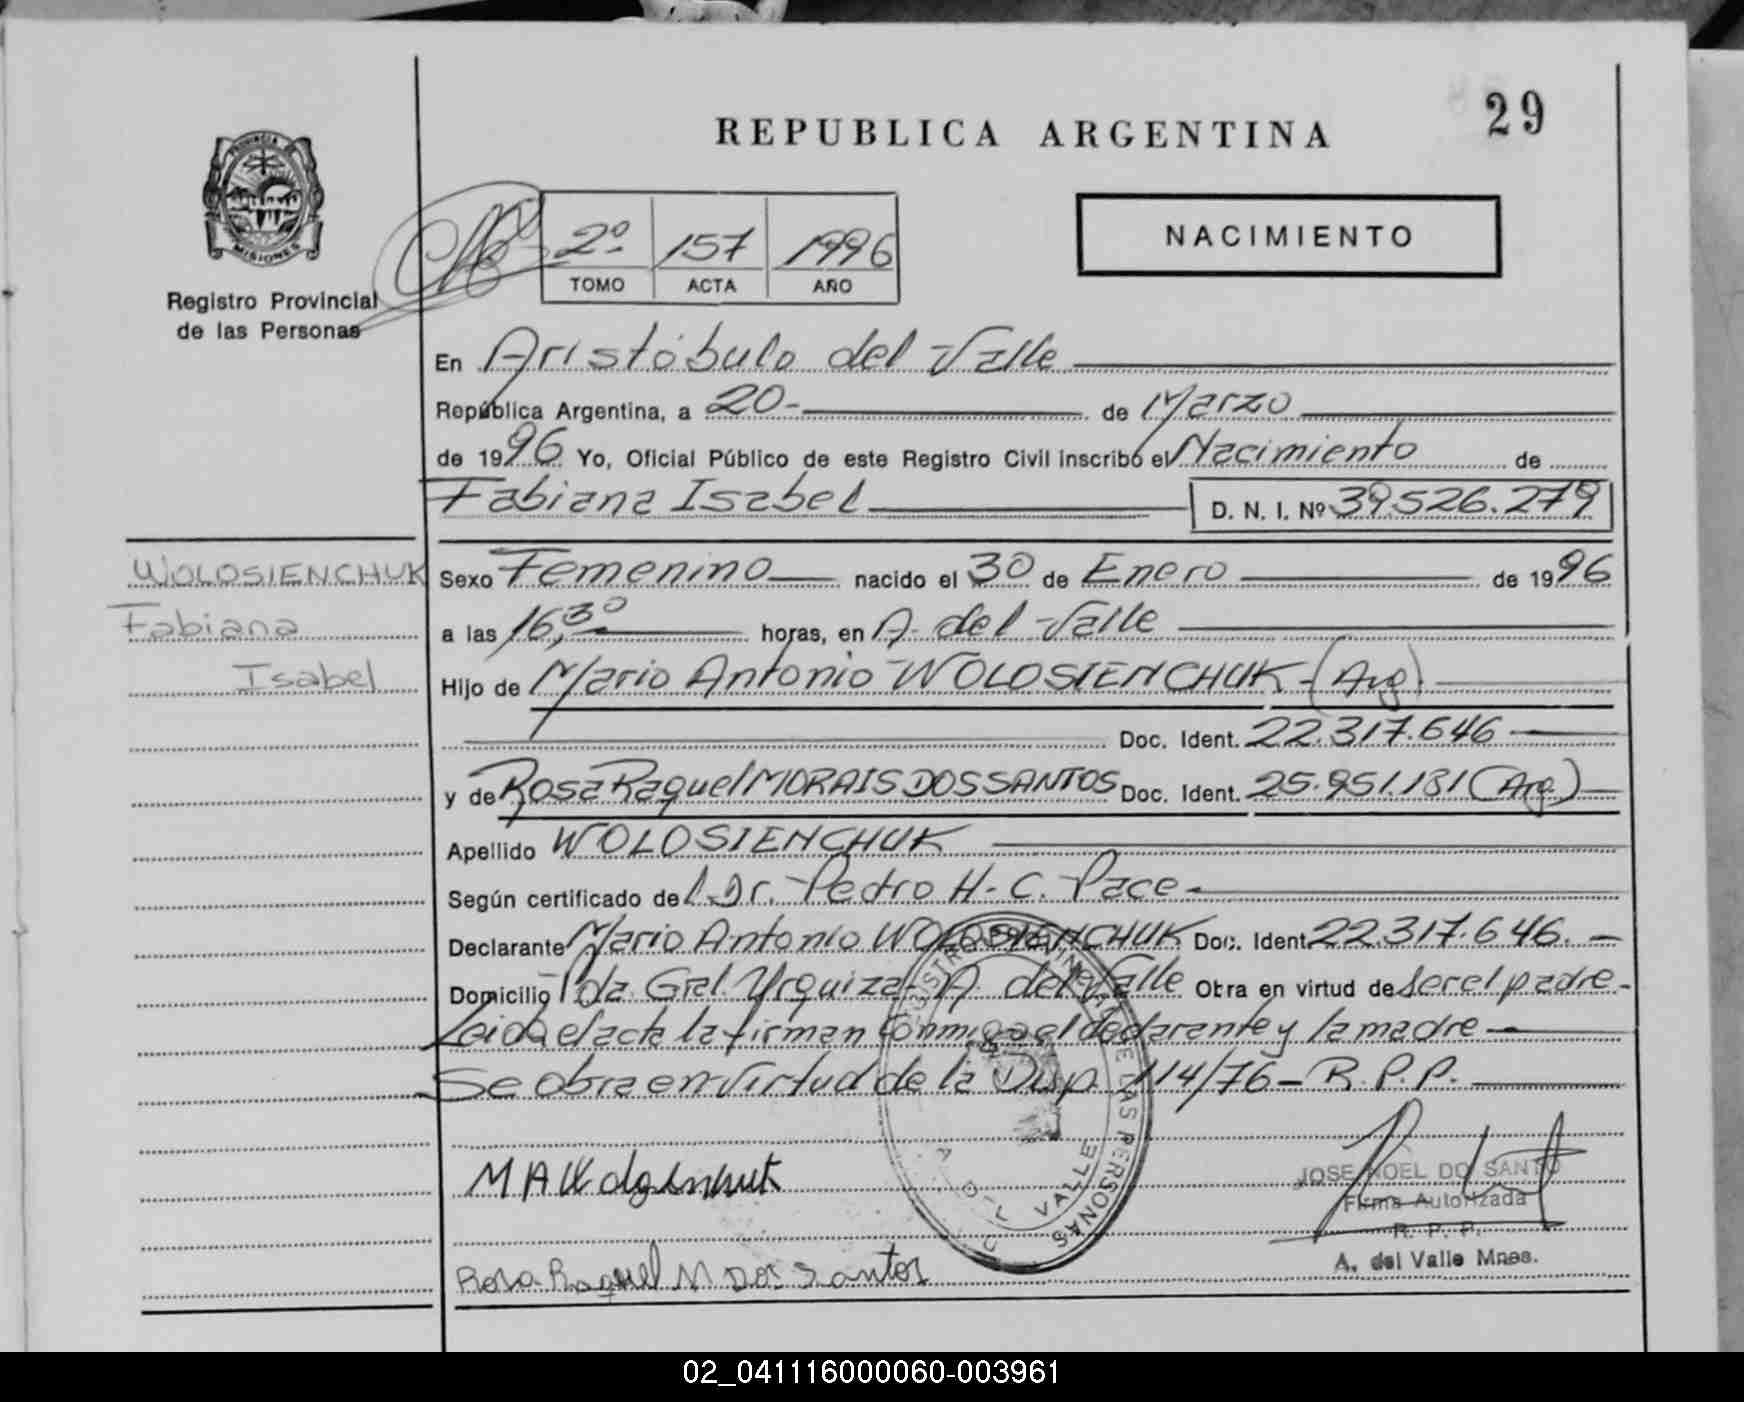 29
REPUBLICA ARGENTINA
PROVINCIA DE
MISIONES
Registro Provincial
de las Personas
2º TOMO 157 ACTA 1996 AÑO
NACIMIENTO
En Aristóbulo del Valle
República Argentina, a 20- de Marzo
de 1996 Yo, Oficial Público de este Registro Civil inscribo el Nacimiento de
Fabiana Isabel D. N. I. Nº 39.526.279
WOLOSIENCHUK
Fabiana
Isabel
Sexo Femenino nacido el 30 de Enero de 1996
a las 16,30 horas, en A. del Valle
Hijo de Mario Antonio WOLOSIENCHUK-(Arg)
Doc. Ident. 22.317.646
y de Rosa Raquel MORAIS DOS SANTOS Doc. Ident. 25.951.181 (Arg.)
Apellido WOLOSIENCHUK
Según certificado del Dr. Pedro H. C. Pace-
Declarante Mario Antonio WOLOSIENCHUK Doc. Ident. 22.317.646. -
Domicilio Pda Gral Urquiza- A. del Valle Obra en virtud de ser el padre-
Leida el acta la firman conmigo el declarante y la madre-
Se obra en virtud de la Disp. 114/76- R.P.P.
JOSE NOEL DO SANTO
Firma Autorizada
R. P. P.
A. del Valle Mnes.
Rosa Raquel M Dos Santos
DE LAS PERSONAS
VALLE
02_041116000060-003961